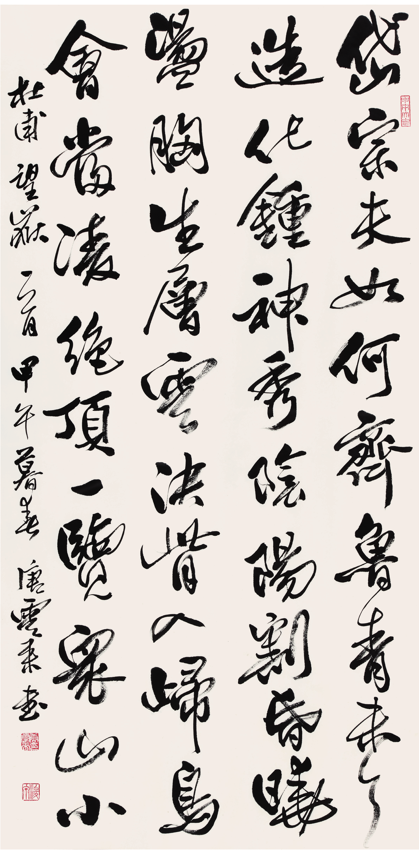 岱宗夫如何齊魯青未了
造化鍾神秀陰陽割昏曉
盪胸生層雲決眥入歸鳥
會當凌絕頂一覽衆山小
杜甫望嶽一首甲午暮春唐雲來书